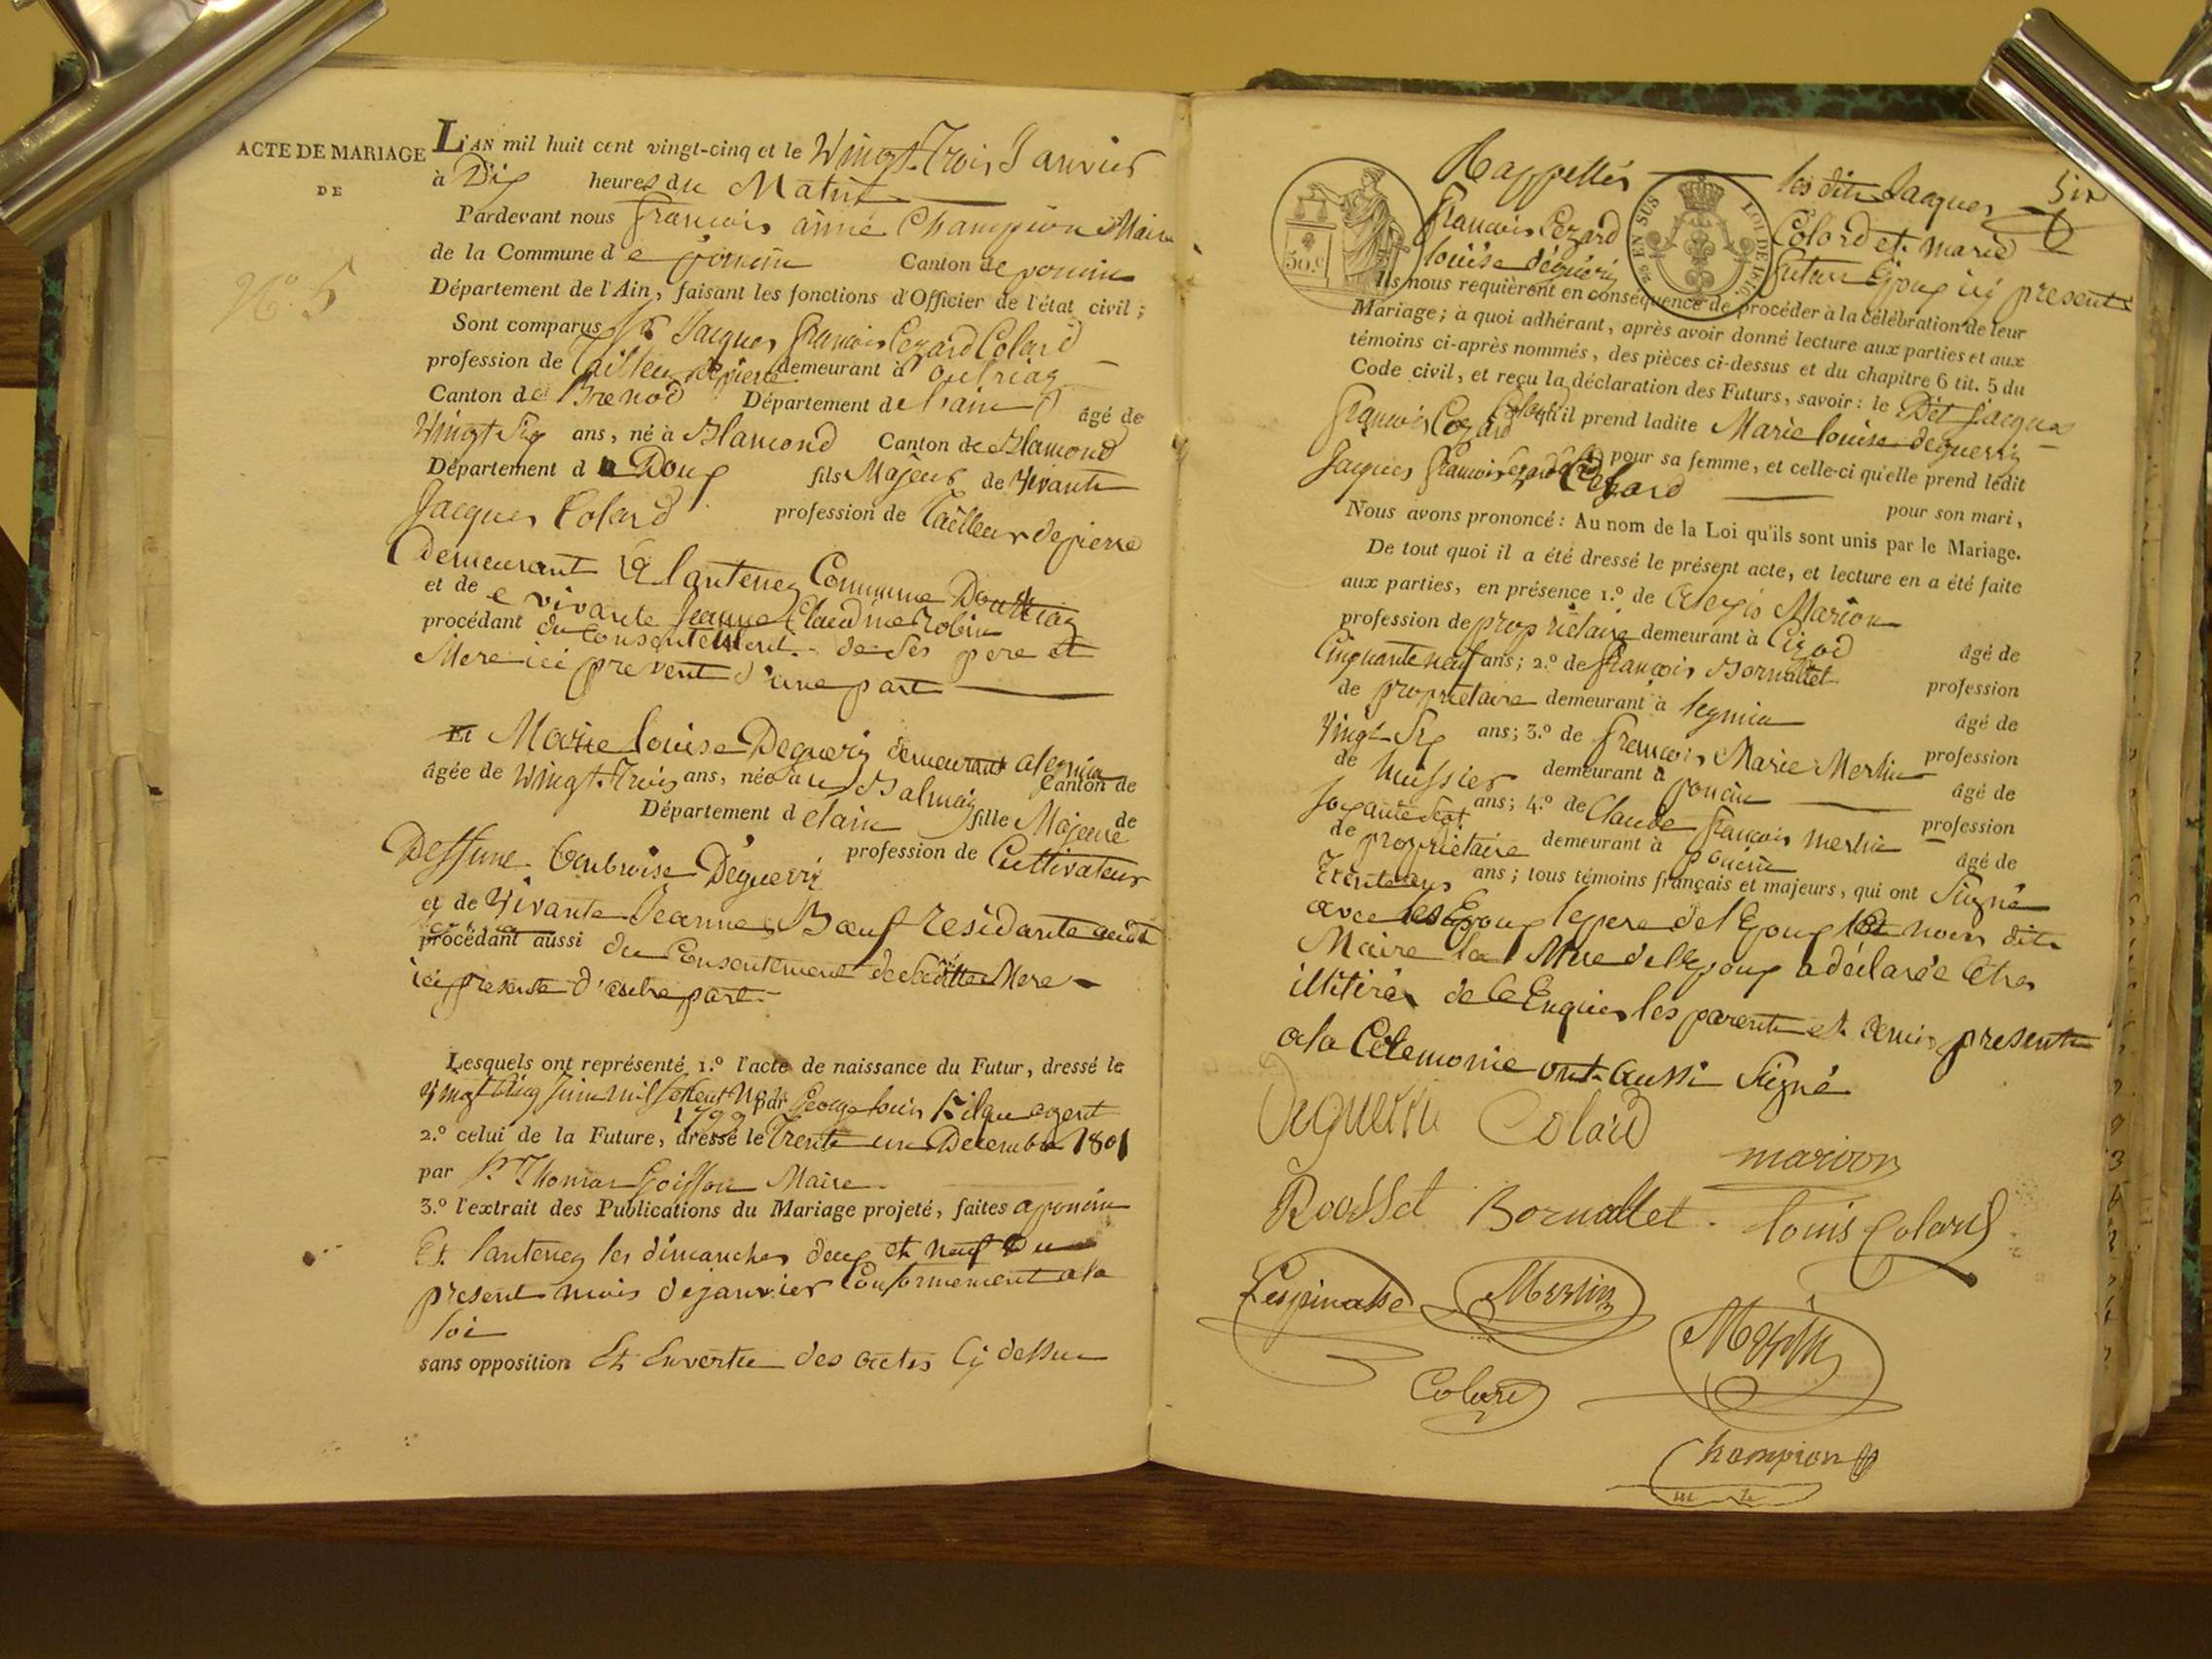 ACTE DE MARIAGE
DE
N.o 5
L'AN mil huit cent vingt-cinq et le Wingt-Trois Janvier
à Dix heures du Matin
Pardevant nous francois aimé Champion Maire
de la Commune de poncin Canton de poncin
Département de l'Ain, faisant les fonctions d'Officier de l'état civil ;
Sont comparus Sr. Jacques francois Cezard Colard
profession de Tailleur de pierre demeurant à outriaz
Canton de Brenod Département de l'ain âgé de
Wingt Six ans, né à Blamond Canton de Blamond
Département d Doux fils Majeur de Vivante
Jacques Colard profession de Tailleur de pierre
Demeurant a lantenez Commune Doutriaz
et de vivante Jeanne Claudine Robin
procédant du Consentement de Ses pere et
Mere ici present d'une part
Et Marie louise Deguerry demeurant a legnia
âgée de Wingt-Trois ans, née au Balmay Canton de
Département d elain fille Majeure de
Deffunt Ambroise Deguerry profession de Cultivateur
et de Vivante Jeanne Bœuf residante audit
procédant aussi du Consentement de Mere
ici presente d'autre part
Lesquels ont représenté 1.º l'acte de naissance du Futur, dressé le
Vingt Cinq Juin mil Sept Cent par George louis agent
1799
2.º celui de la Future, dressé le Trente un Decembre 1801
par Sr. Thomas Goiffon Maire
3.º l'extrait des Publications du Mariage projeté, faites a poncin
Et lantenez les dimanches deux et neuf Du
present mois de janvier Conformement a la
loi
sans opposition Et En vertu des actes Cy dessus
Rappellés les dits Jacques Six
francois Cezard Colard et marie
louise déguerry futurs Epoux ici presents
50 C
25 EN SUS LOI DE 1816
Ils nous requièrent en conséquence de procéder à la célébration de leur
Mariage ; à quoi adhérant, après avoir donné lecture aux parties et aux
témoins ci-après nommés, des pièces ci-dessus et du chapitre 6 tit. 5 du
Code civil, et reçu la déclaration des Futurs, savoir : le Dit Jacques
francois Cezard Colard qu'il prend ladite Marie louise deguerry
pour sa femme, et celle-ci qu'elle prend ledit
Jacques francois Cezard Colard pour son mari,
Nous avons prononcé : Au nom de la Loi qu'ils sont unis par le Mariage.
De tout quoi il a été dressé le présent acte, et lecture en a été faite
aux parties, en présence 1.º de Alexis Marion
profession de proprietaire demeurant à Cizod âgé de
Cinquante neuf ans ; 2.º de françois Bornallet profession
de proprietaire demeurant à legnia âgé de
Vingt Six ans ; 3.º de francois Marie Merlin profession
de huissier demeurant à poncin âgé de
Soixante Sept ans ; 4.º de Claude francois Merlin profession
de proprietaire demeurant à poncin âgé de
Trente ans ; tous témoins français et majeurs, qui ont Signé
avec les Epoux le pere de l'Epoux Et nous dit
Maire la Mere de l'Epoux a déclarée Etre
illitérée de ce Enquis les parents et amis presents
a la Cèlemonie ont aussi Signé
Deguerri Colard
marion
Rousset Bornallet louis Colard
Lespinasse Merlin
Merlin
Colard
Champion